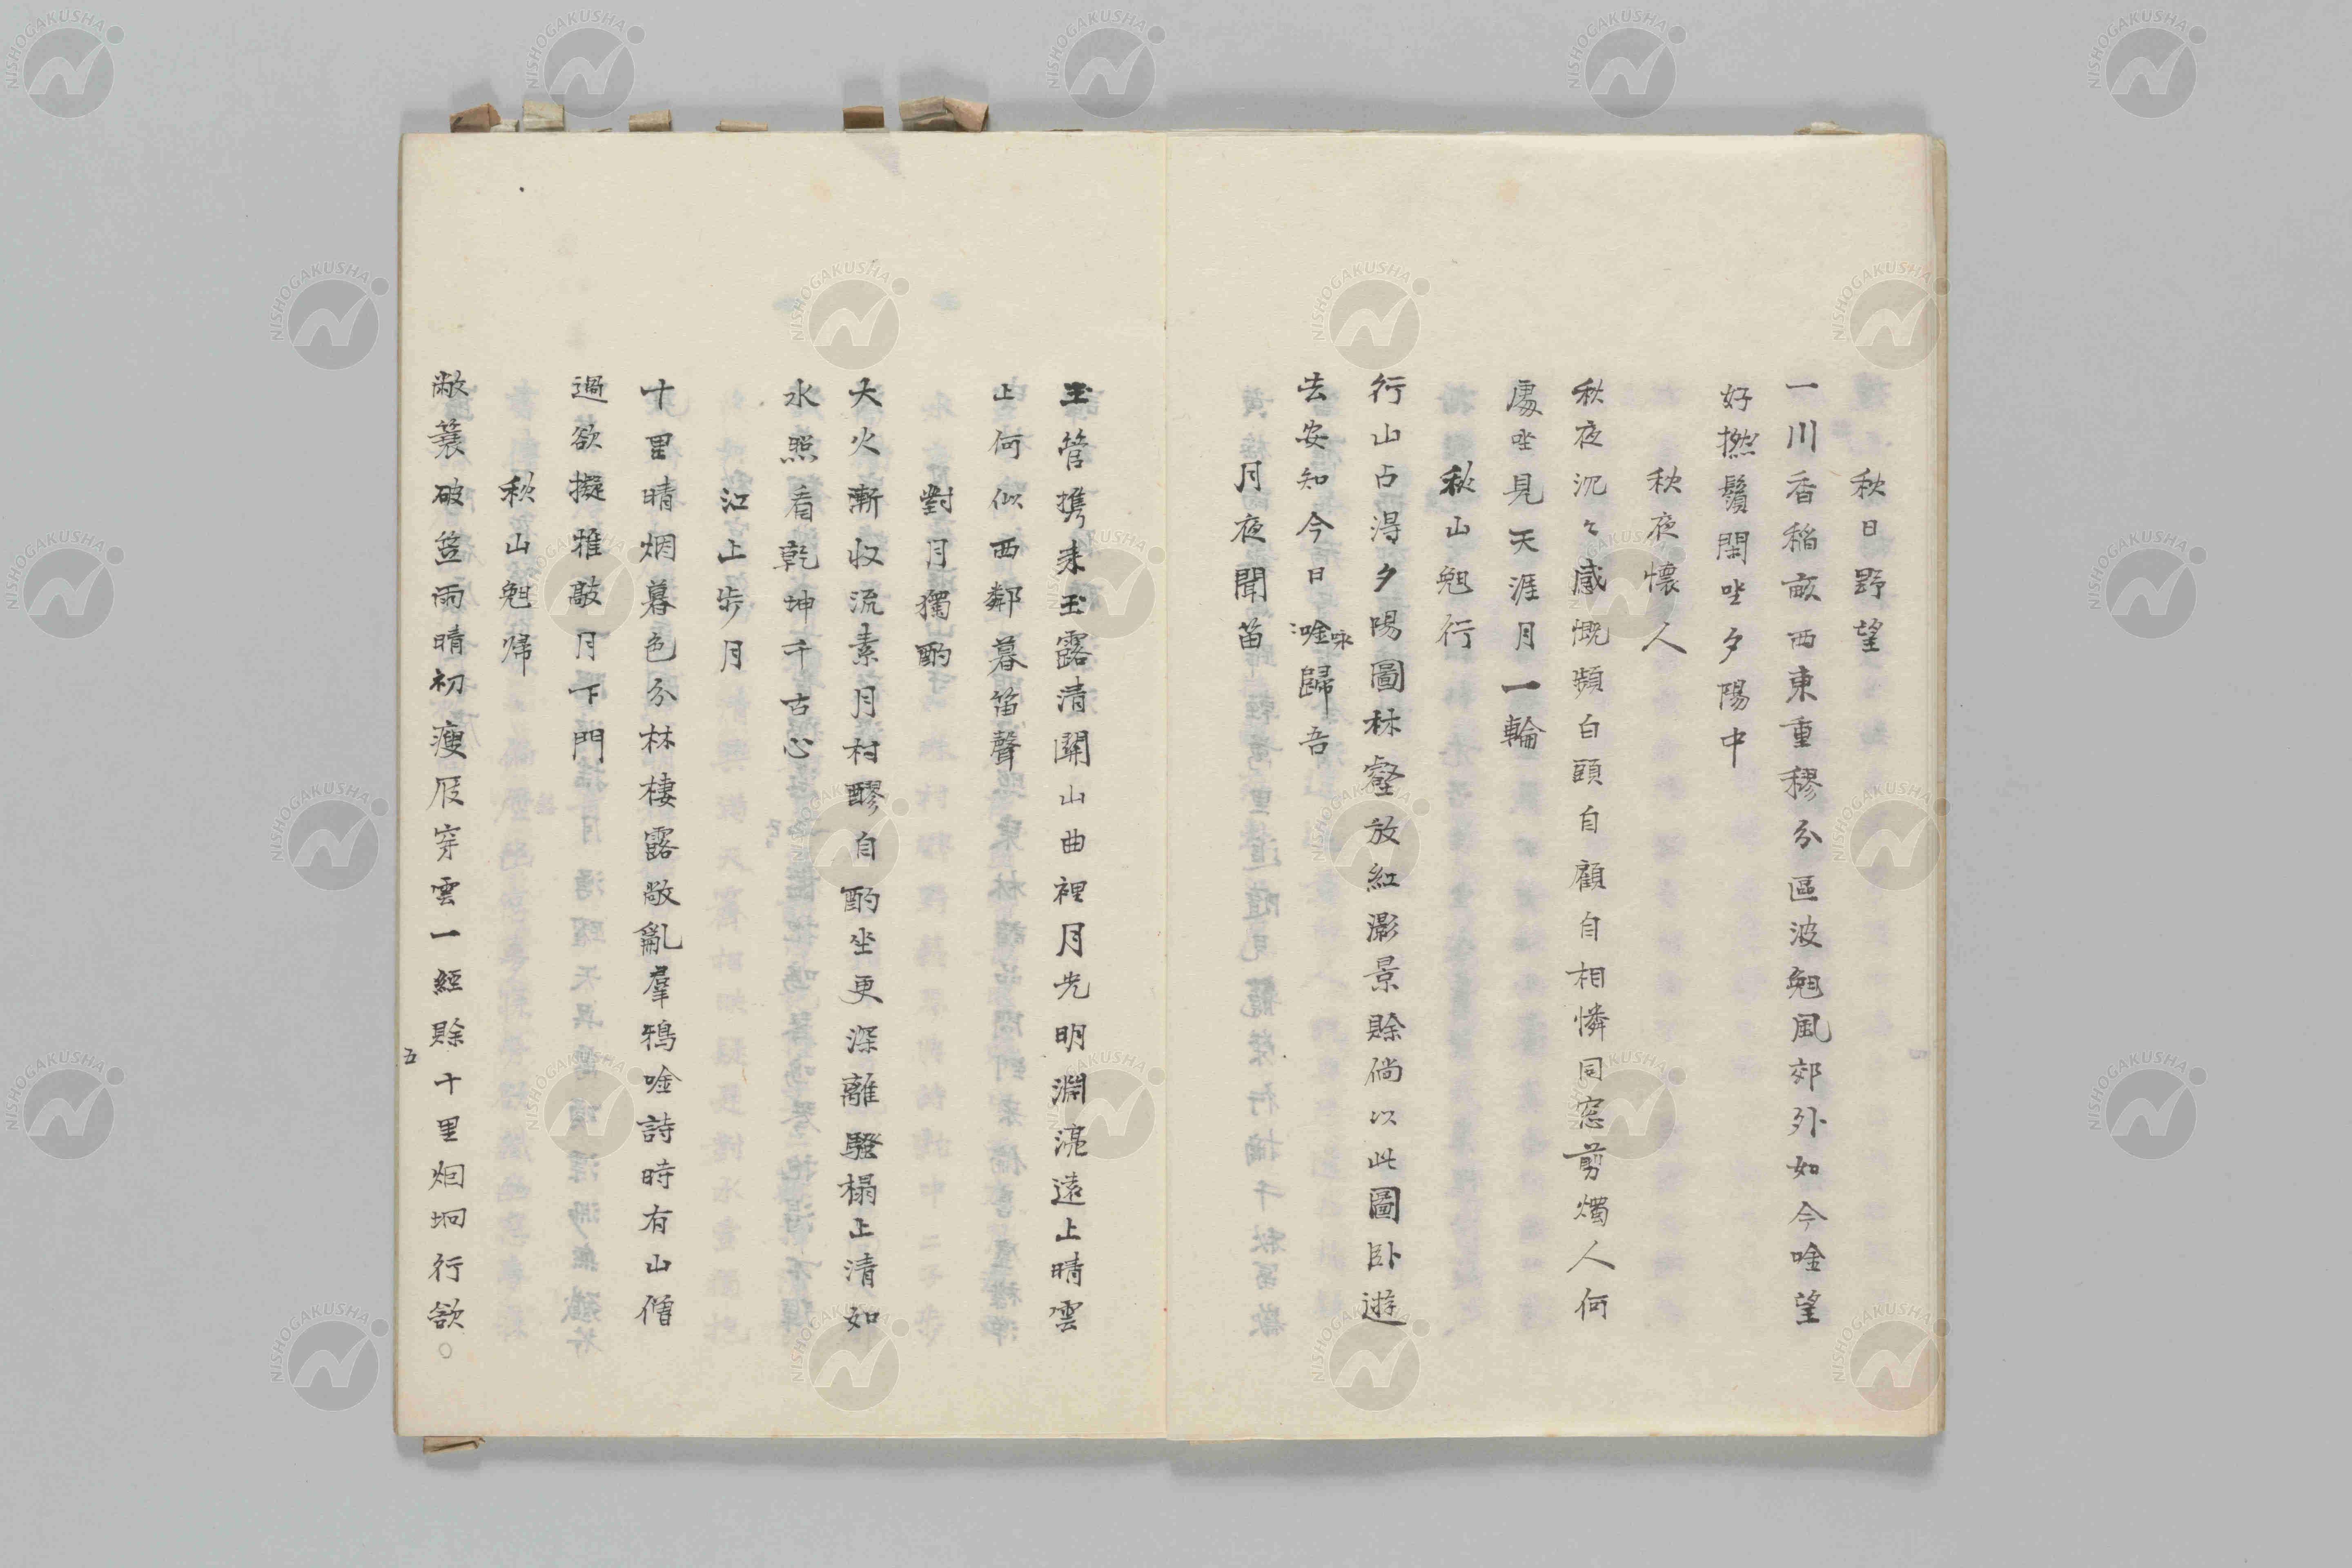 秋日野望
一川香稲畝西東重穆分區波颭風郊外如今唫望
好撚鬚閑坐夕陽中
秋夜懐人
秋夜沉々感慨頻白頭自顧自相憐同窓剪燭人何
處坐見天涯月一輪
秋山颭行
行山占得夕陽圖林壑放紅澂景賖倘以此圖卧遊
去安知今日唫歸吾
咏
月夜聞笛
玉管携来玉露清關山曲裡月光明淵湸遠上晴雲
上何似西鄰暮笛聲
對月獨酌
大火漸収流素月村醪自酌坐更深離騒榻上清如
水照看乾坤千古心
江上歩月
十里晴烟暮色分林棲露敞亂羣鴉唫詩時有山僧
過欲擬雅敲月下門
秋山颭帰
敝簑破笠雨晴初瘦屐穿雲一經賖十里烟坰行欲
五
NISHOGAKUSHA